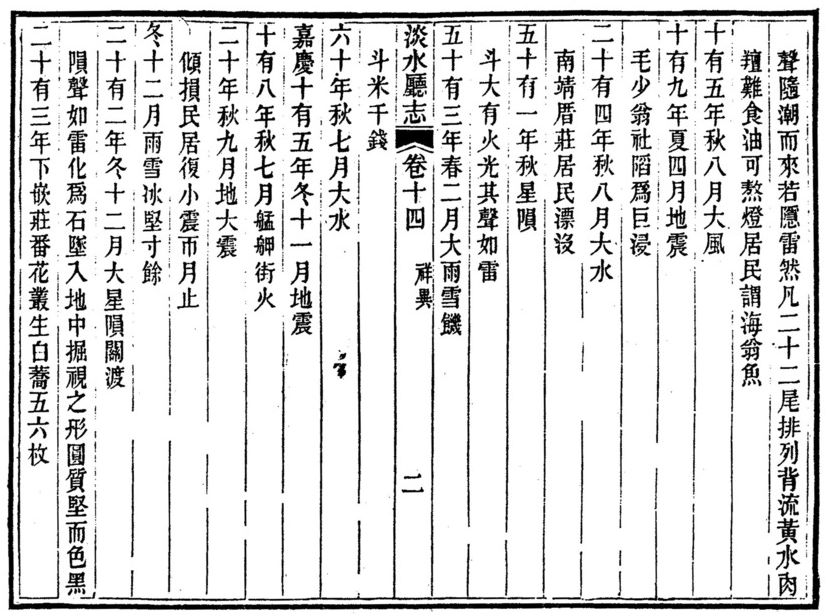 聲隨潮而來若隱雷然凡二十二尾排列背流黃水肉
羶難食油可熬燈居民謂海翁魚
十有五年秋八月大風
十有九年夏四月地震
毛少翁社陷爲巨浸
二十有四年秋八月大水
南靖厝莊居民漂沒
五十有一年秋星隕
斗大有火光其聲如雷
五十有三年春二月大雨雪饑
淡水廳志 卷十四 祥異 二
斗米千錢
六十年秋七月大水
嘉慶十有五年冬十一月地震
十有八年秋七月艋舺街火
二十年秋九月地大震
傾損民居復小震而月止
冬十二月雨雪冰堅寸餘
二十有二年冬十二月大星隕關渡
隕聲如雷化爲石墜入地中掘視之形圓質堅而色黑
二十有三年下嵌莊番花叢生白蕎五六枚